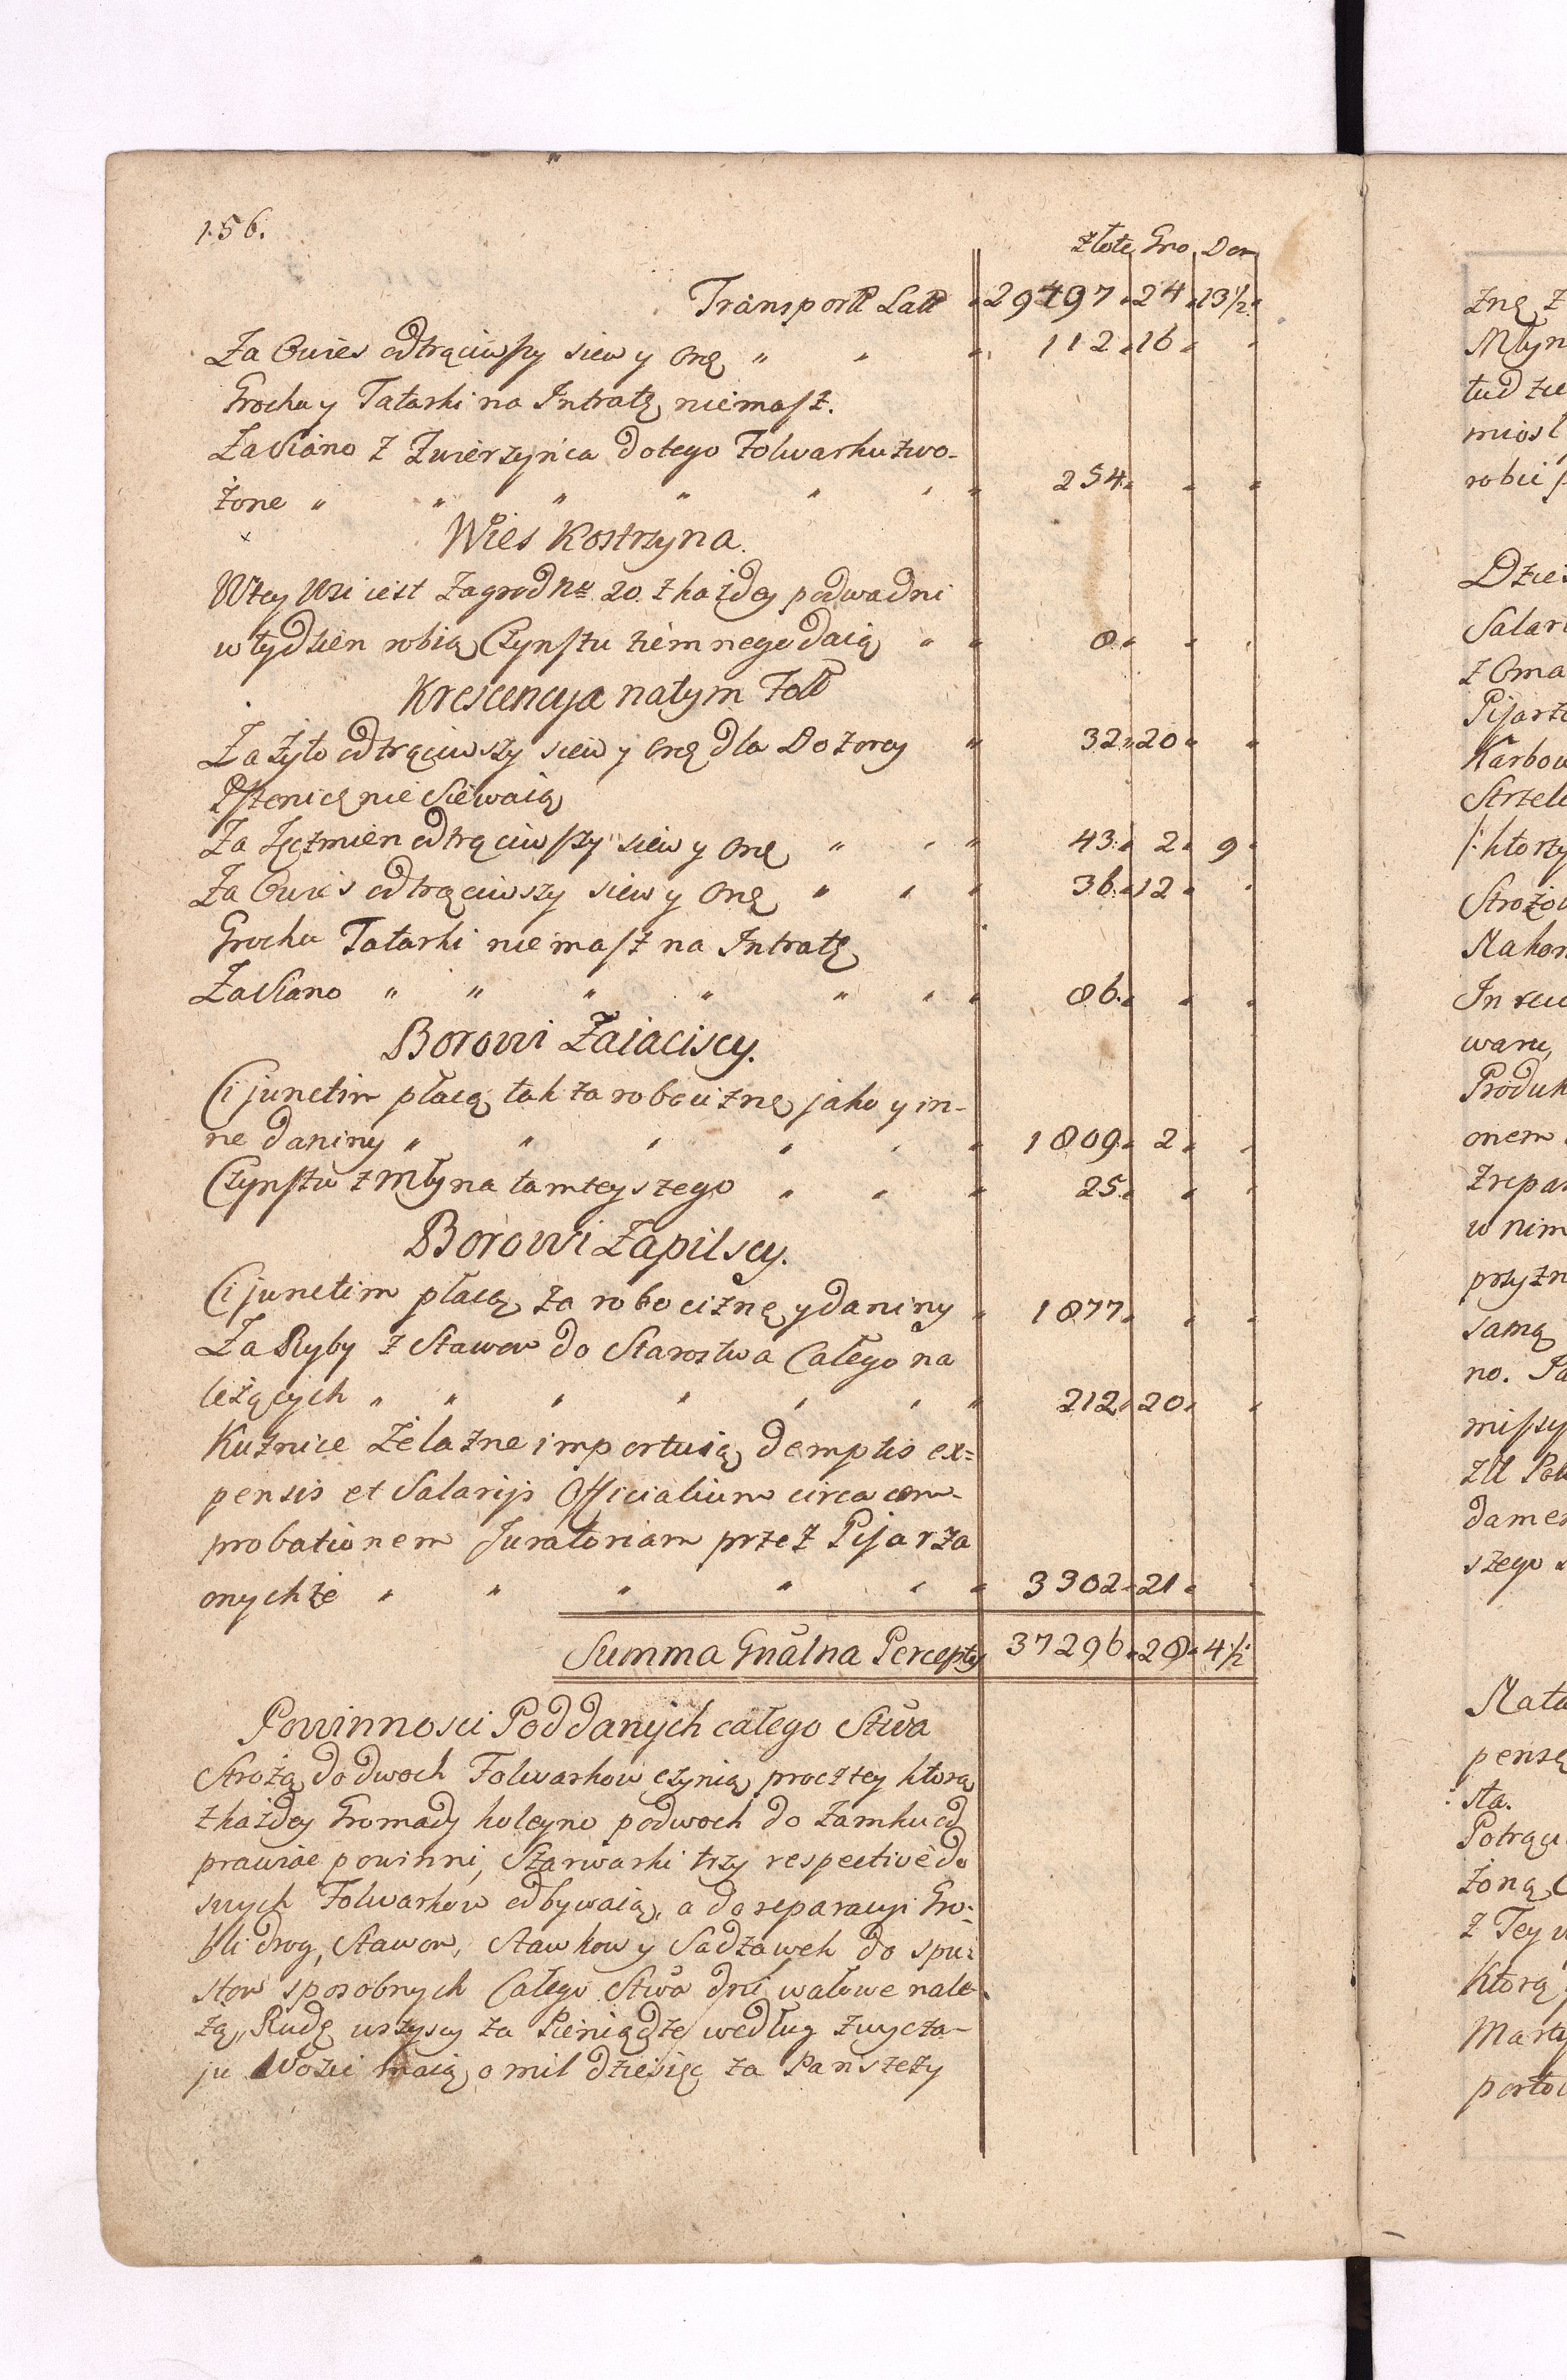 156.
Złote Gro. Den
Transport Lat 29497. 24. 13½.
Za Owies odtrąciwszy siew y Orę „ „ „ 112. 16. „
Grochu y Tatarki na Intratę niemasz.
Za Siano z Zwierzyńca do tego Folwarku zwo-
żone „ „ „ „ „ „ „ 254. „ „
Wies Kostrzyna.
W tey Wsi iest Zagrod Nro 20. z każdey po dwa dni
w tydzien robią Czynszu ziemnego daią „ „ 8. „ „
Krescencya na tym Fol
Za żyto odtrąciwszy siew y Orę dla Dozorcy „ 32. 20. „
Pszenicę nie Siewaią
Za Jęczmien odtrąciwszy siew y Orę „ „ „ 43. 2. 9.
Za Owies odtrąciwszy siew y Orę „ „ „ 36. 12. „
Grochu Tatarki niemasz na Intratę
Za Siano „ „ „ „ „ „ „ 86. „ „
Borowi Zaiaciscy.
Ci junctim płacą tak za robociznę jako y in-
ne daniny „ „ „ „ „ „ 1809. 2. „
Czynszu z Młyna tamteyszego „ „ „ 25. „ „
Borowi Zapilscy.
Ci junctim płacą za robociznę y daniny „ 1877. „ „
Za Ryby z Stawow do Starostwa Całego na
leżących „ „ „ „ „ „ „ 212. 20. „
Kuźnice Żelazne importuią demptis ex=
pensis et Salarijs Officialium circa com-
probationem Juratoriam przez Pijarza
onychże „ „ „ „ „ „ 3302. 21. „
Summa Gnalna Percepty 37296. 28. 4½
Powinnosci Poddanych całego Stwa
Strożą do dwoch Folwarkow czynią procz tey ktorą
z każdey Gromady koleyno po dwoch do Zamku od
prawiac powinni, Szarwarki trzy respective do
swych Folwarkow odbywaią, a do reparacyi Gro-
bli drog, Stawow, Stawkow y Sadzawek do spu-
stow sposobnych Całego Stwa dni wałowe nale-
żą, Rudę wszyscy za Pieniądze według zwycza-
ju Wozić maią o mil dziesięc za Panszczy
zną z
Młyn
tudzie
miost
robic
Dzies
Salari
z Oma
Pijarz
Karbow
Strzelc
/:ktorzy
Strożow
Nakon
In
waru,
Produk
onem
Zrepar
w nim
przyzn
samą
no.
missy
dame
szego
Nata
pensę
sta.
Potrąci
żoną
z Tey
Ktorą
Marty